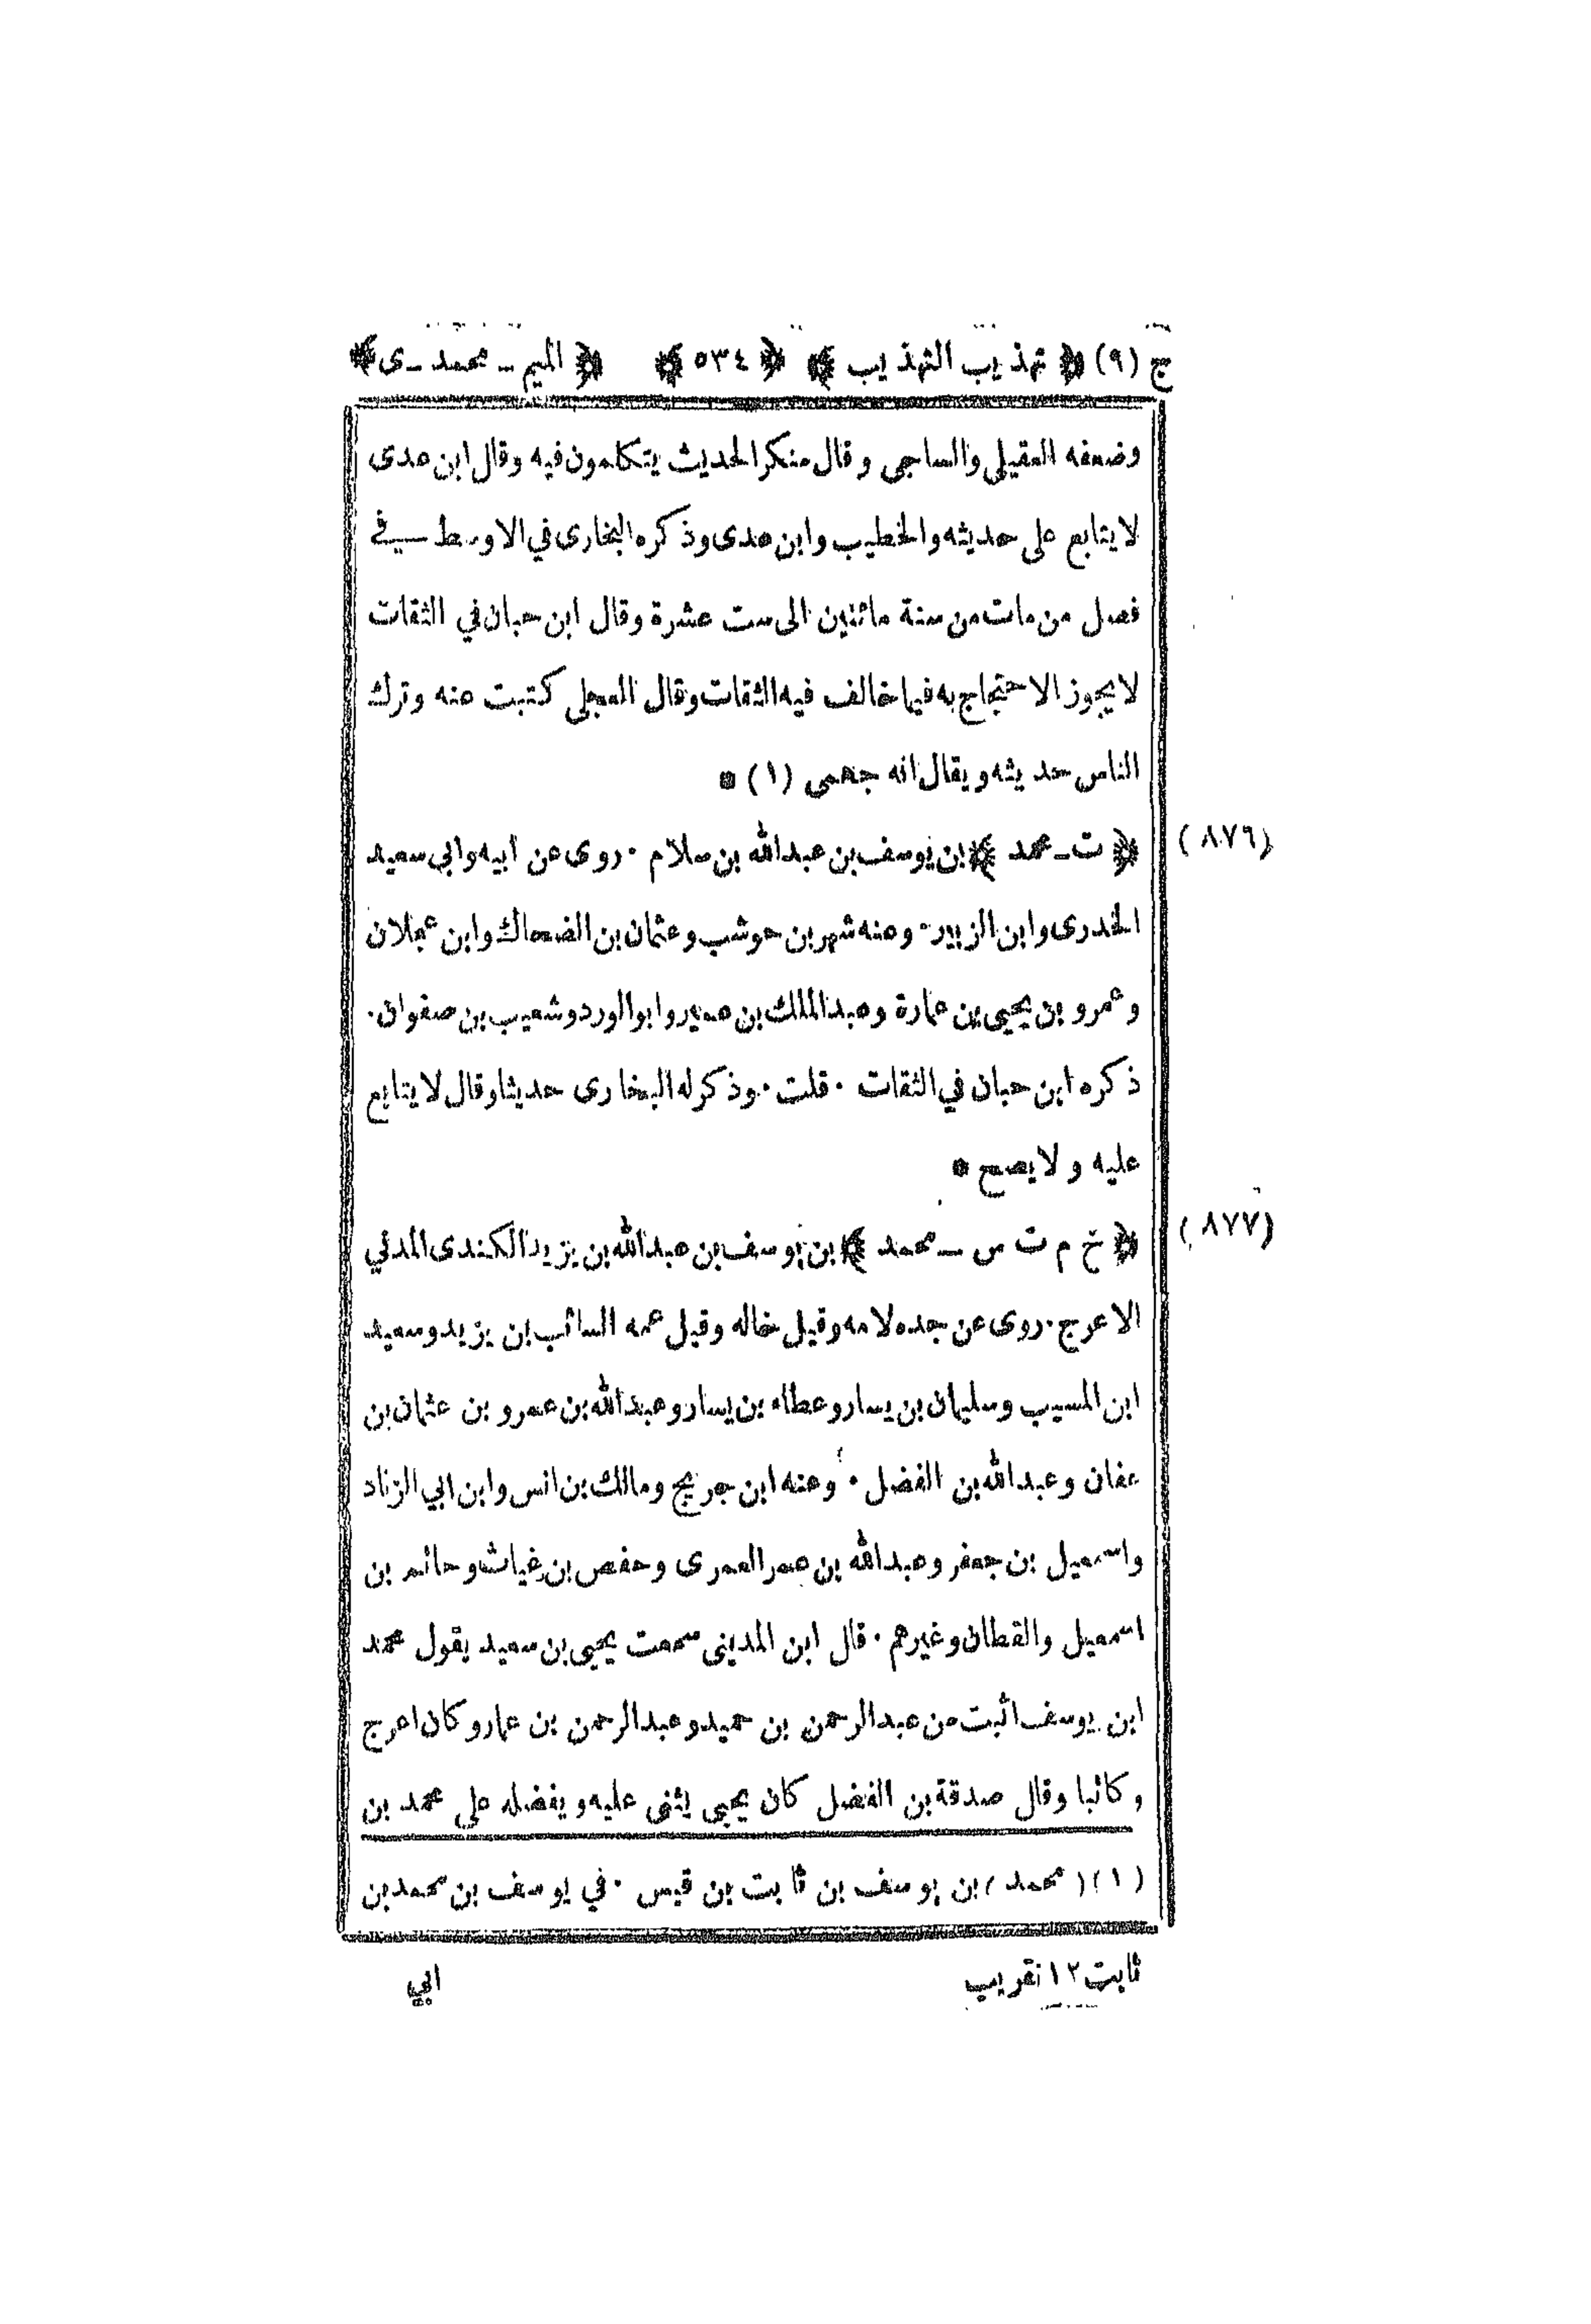 ج (٩) ﴿ تهذيب التهذيب ﴾ ﴿ ٥٣٤ ﴾ ﴿ الميم - محمد - ى ﴾
وضعفه العقيلي والساجى وقال منكر الحديث يتكلمون فيه وقال ابن عدى
لا يتابع على حديثه والخطيب وابن عدى وذكره البخارى في الاوسط في
فصل من مات من سنة مائتين الى ست عشرة وقال ابن حبان في الثقات
لا يجوز الاحتجاج به فيما خالف فيه الثقات وقال العجلى كتبت عنه وترك
الناس حديثه ويقال انه جهمى (١) *
(٨٧٦) ﴿ ت - محمد ﴾ بن يوسف بن عبدالله بن سلام . روى عن ابيه وابي سعيد
الخدرى وابن الزبير . وعنه شهر بن حوشب وعثمان بن الضحاك وابن عجلان
وعمرو بن يحيى بن عمارة وعبدالملك بن عمير وابو الورد وشعيب بن صفوان .
ذكره ابن حبان في الثقات . قلت . وذكر له البخارى حديثا وقال لا يتابع
عليه ولا يصح *
(٨٧٧) ﴿ خ م ت س - محمد ﴾ بن يوسف بن عبدالله بن يزيد الكندى المدني
الاعرج . روى عن جده لامه وقيل خاله وقيل عمه السائب بن يزيد وسعيد
ابن المسيب وسليمان بن يسار وعطاء بن يسار وعبدالله بن عمرو بن عثمان بن
عفان وعبدالله بن الفضل . وعنه ابن جريج ومالك بن انس وابن ابي الزناد
واسمعيل بن جعفر وعبدالله بن عمر العمرى وحفص بن غياث وحاتم بن
اسمعيل والقطان وغيرهم . قال ابن المدينى سمعت يحيى بن سعيد يقول محمد
ابن يوسف اثبت من عبدالرحمن بن حميد وعبدالرحمن بن عمار وكان اعرج
وكاتبا وقال صدقة بن الفضل كان يحيى يثنى عليه ويفضله على محمد بن
(١) (محمد) بن يوسف بن ثابت بن قيس . في يوسف بن محمد بن
ثابت ١٢ تقريب
ابي